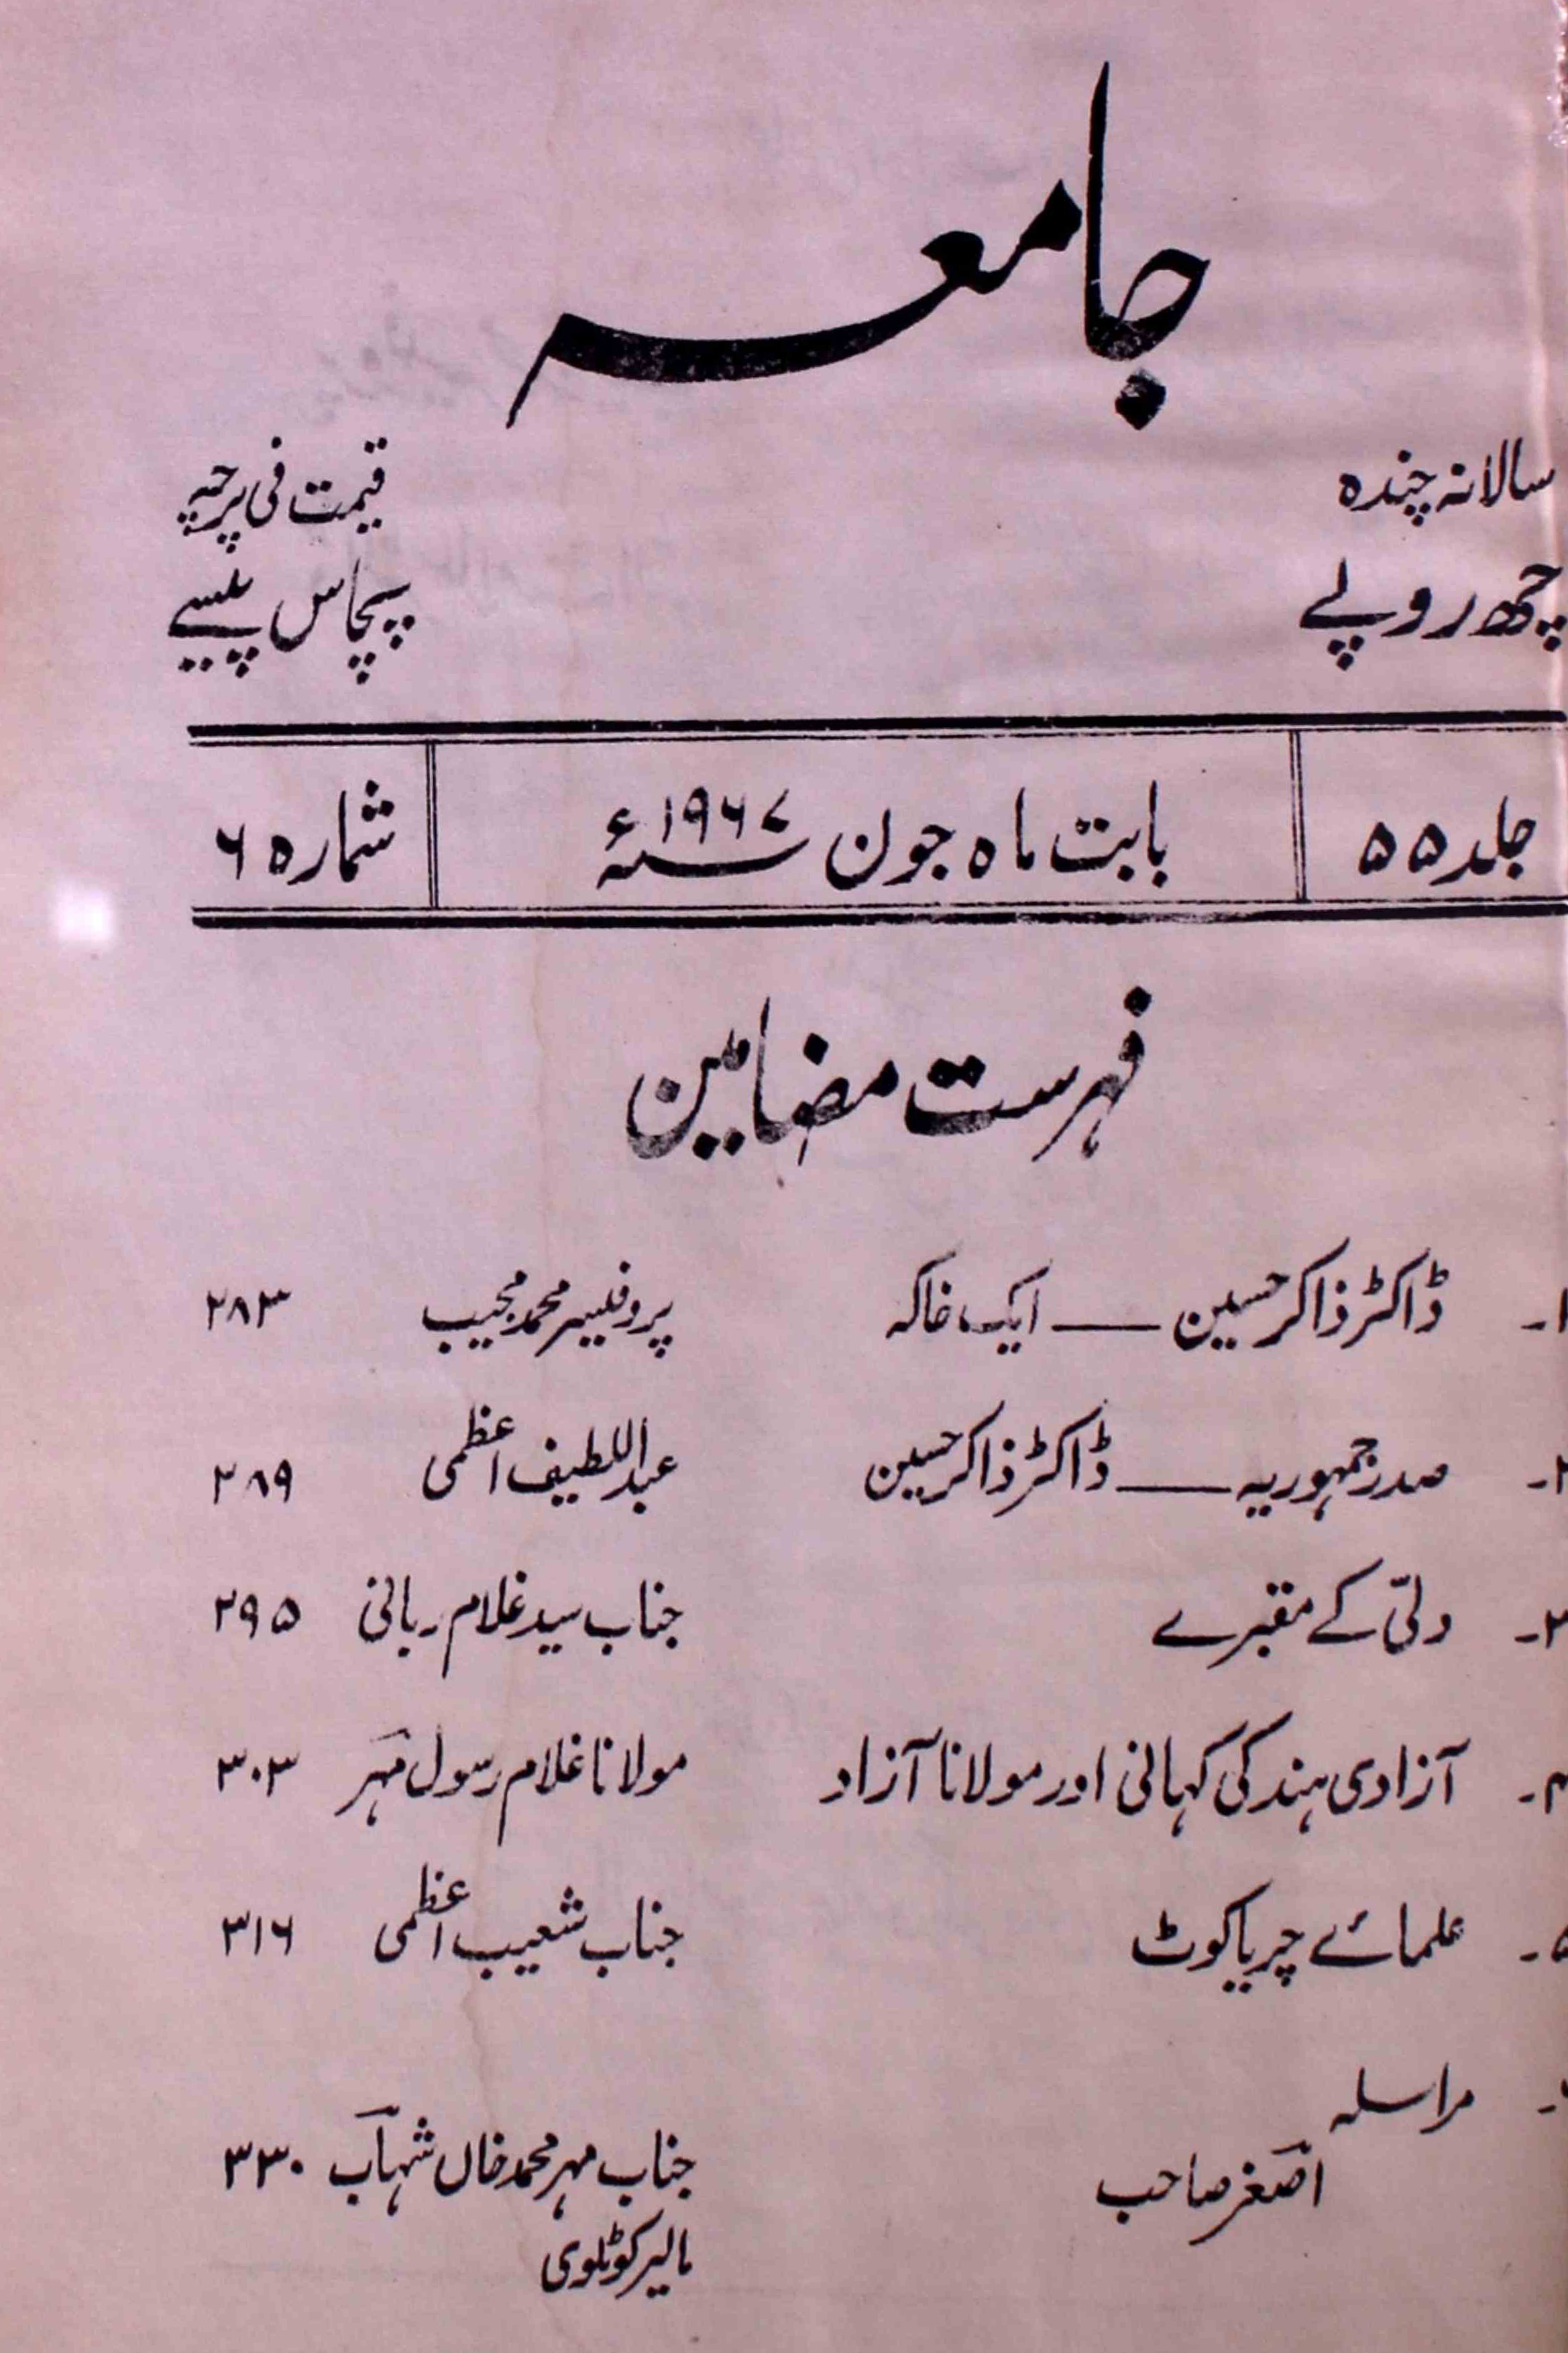 جامعہ
سالانہ چندہ
قیمت فی پرچہ
چھ روپے
پچاس پیسے
جلد ۵۵
بابت ماہ جون ۱۹۶۷ء
شمارہ ۶
فہرست مضامین
۱۔ ڈاکٹر ذاکر حسین — ایک خاکہ پروفیسر محمد مجیب ۲۸۳
۲۔ صدر جمہوریہ — ڈاکٹر ذاکر حسین عبداللطیف اعظمی ۲۸۹
۳۔ دلّی کے مقبرے جناب سید غلام ربانی ۲۹۵
۴۔ آزادی ہند کی کہانی اور مولانا آزاد مولانا غلام رسول مہر ۳۰۳
۵۔ علمائے چریاکوٹ جناب شعیب اعظمی ۳۱۶
۶۔ مراسلہ
اصغر صاحب جناب مہر محمد خاں شہاب ۳۳۰
مالیر کوٹلوی